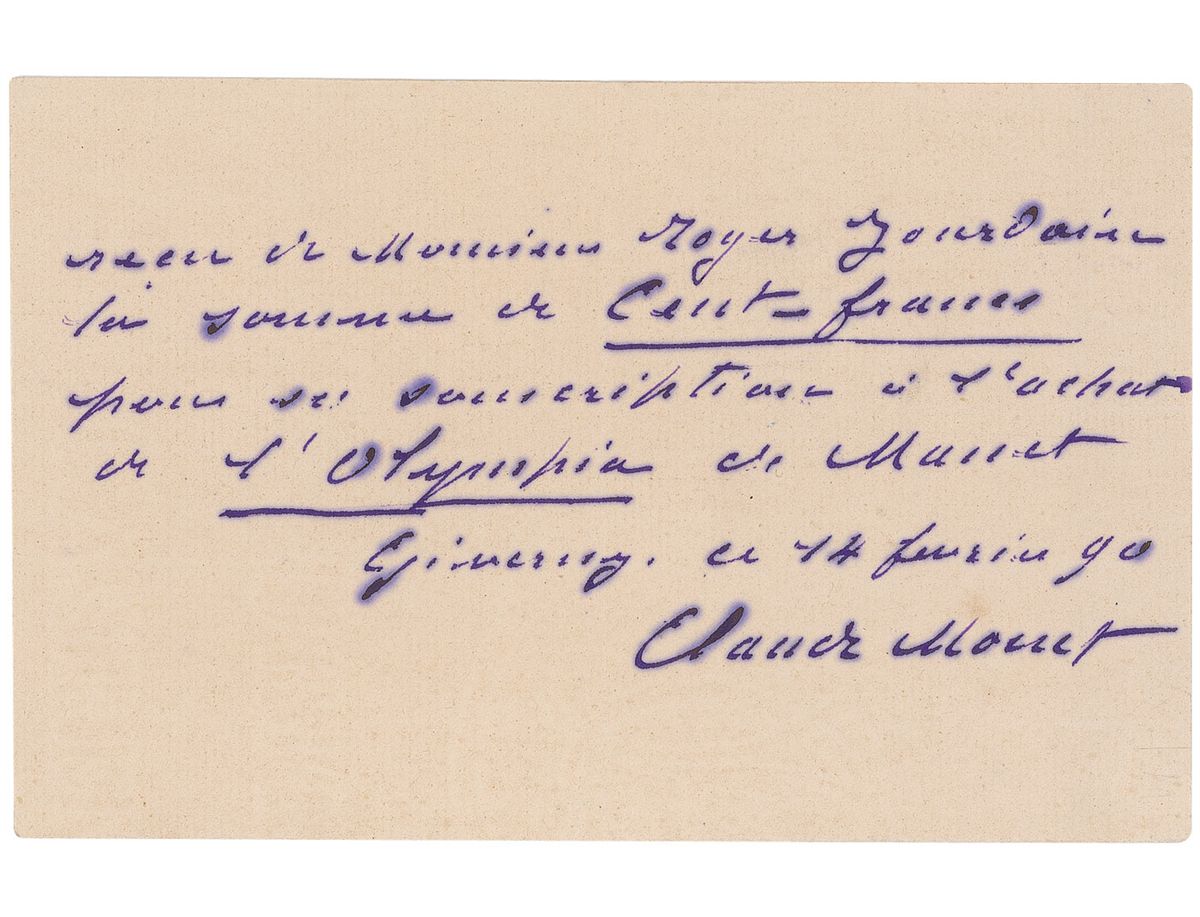 reçu de Monsieur Roger Jourdain
la somme de Cent francs
pour sa souscription à l'achat
de l'Olympia de Manet
Giverny. ce 14 fevrier 90
Claude Monet